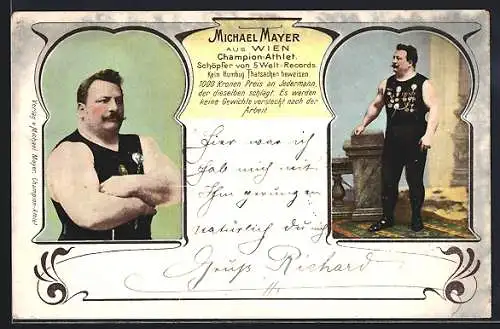 MICHAEL MAYER
AUS WIEN
Champion-Athlet.
Schöpfer von 5 Welt-Records.
Kein Humbug. Thatsachen beweisen.
1000 Kronen Preis an Jedermann,
der dieselben schlägt. Es werden
keine Gewichte versteckt nach der
Arbeit.
Hier war ich
hab mich mit
Ihm gerungen
natürlich du
Gruß Richard
Verlag v. Michael Mayer, Champion-Athlet